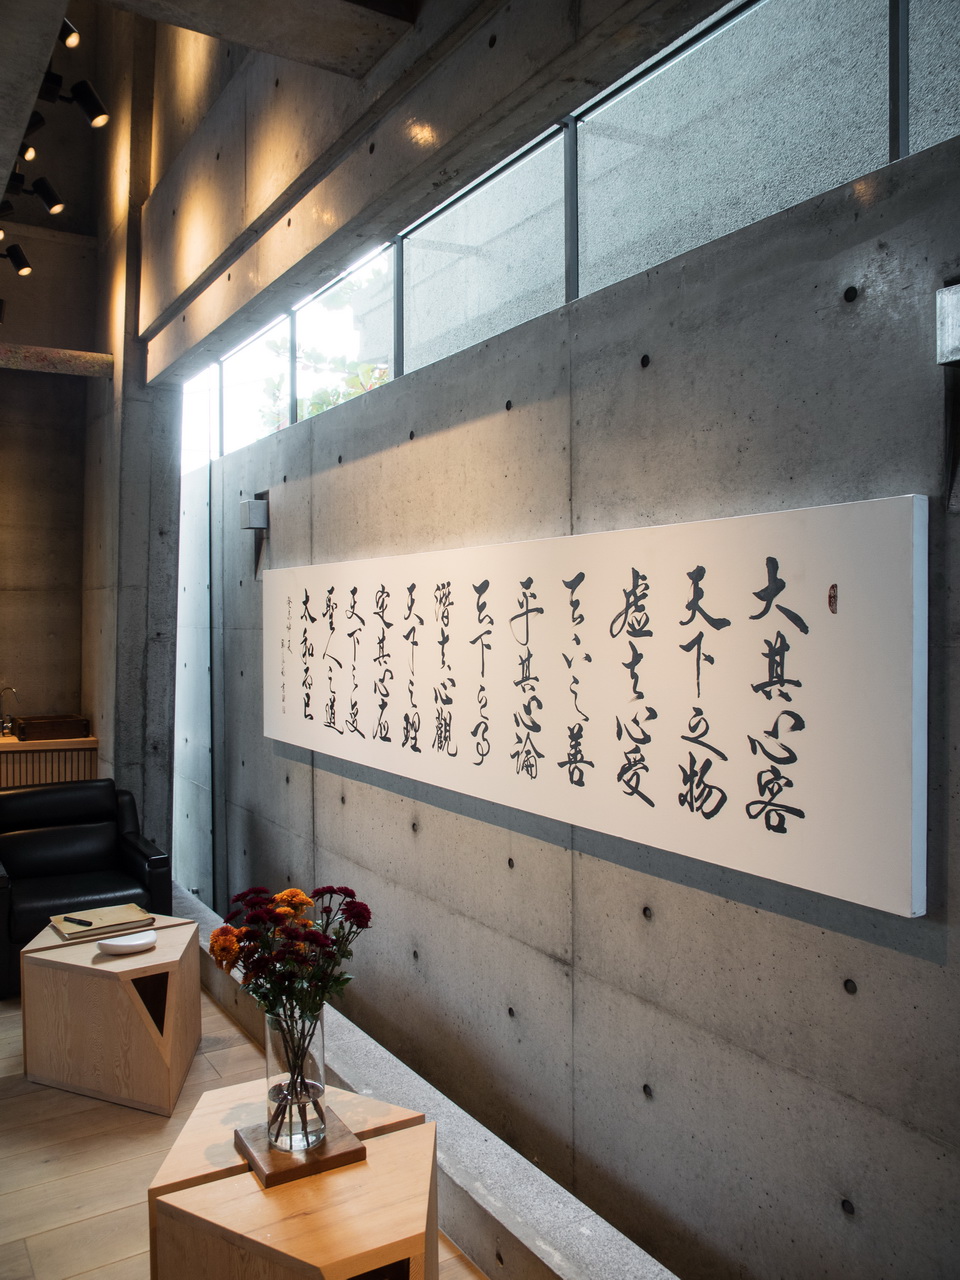 大其心容
天下之物
虛其心受
天下之善
平其心論
天下之事
潛其心觀
天下之理
定其心應
天下之變
聖人之道
太和而已